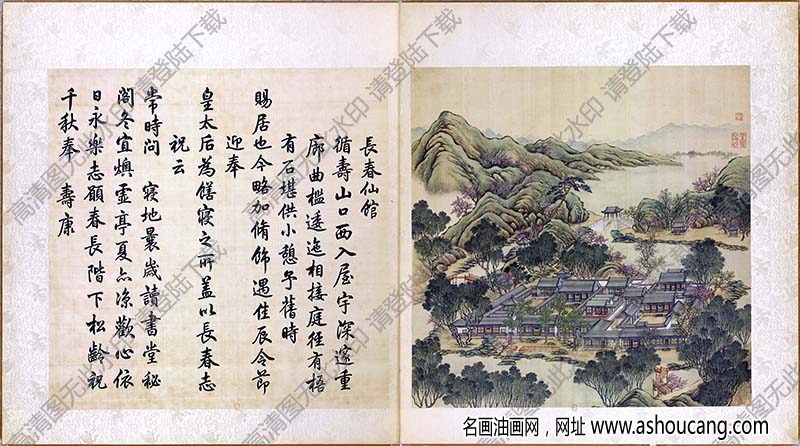 長春仙館
循壽山口西入屋宇深邃重
廊曲檻逶迤相接庭徑有梧
有石堪供小憩予舊時
賜居也今略加脩飾遇佳辰令節
迎奉
皇太后為膳寢之所蓋以長春志
祝云
常時問 寢地曩歲讀書堂秘
閣冬宜燠靈亭夏亦凉歡心依
日永樂志願春長階下松齡祝
千秋奉 壽康
高清图无此水印 请登陆下载
名画油画网，网址 www.ashoucang.com